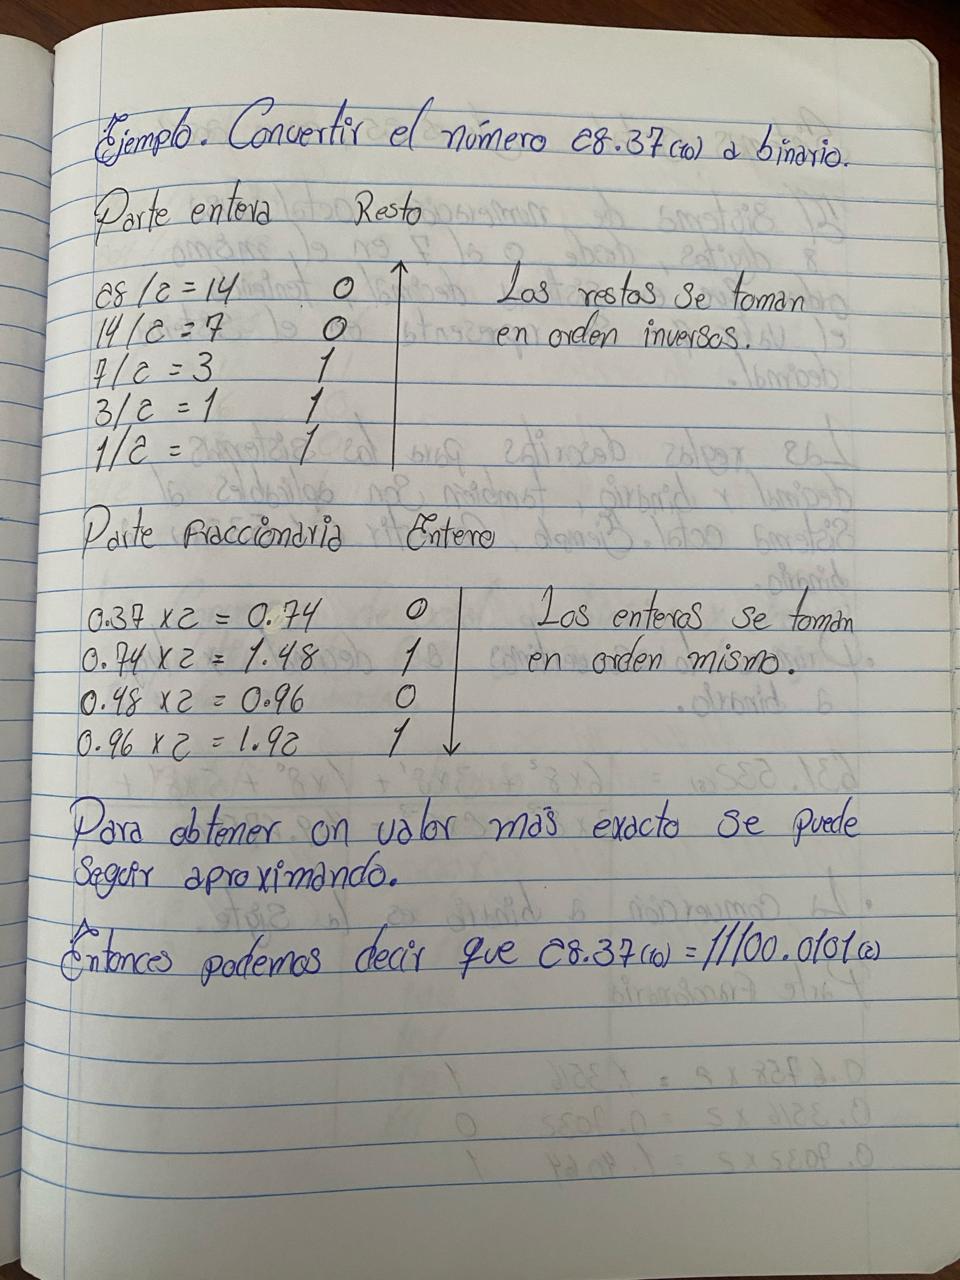 Ejemplo. Convertir el número 28.37(10) a binario.
Parte entera Resto
28/2=14 0
14/2=7 0
7/2=3 1
3/2=1 1
1/2= 1
Los restos se toman
en orden inversos.
Parte fraccionaria Entero
0.37x2=0.74 0
0.74x2=1.48 1
0.48x2=0.96 0
0.96x2=1.92 1
Los enteros se toman
en orden mismo.
Para obtener un valor más exacto se puede
Seguir aproximando.
Entonces podemos decir que 28.37(10)=11100.0101(2)